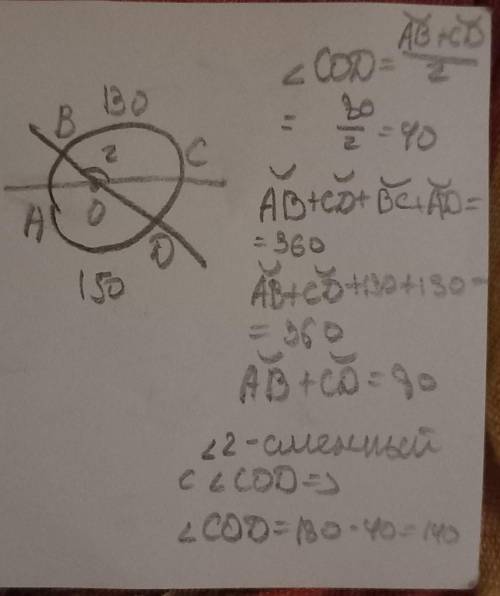 B 130
2 C
A O
D
150
∠COD = (A͝B + C͝D)/2
= 80/2 = 40
A͝B + C͝D + B͝C + A͝D =
= 360
A͝B + C͝D + 130 + 150 =
= 360
A͝B + C͝D = 80
∠2 - сменный
с ∠COD =>
∠COD = 180 - 40 = 140